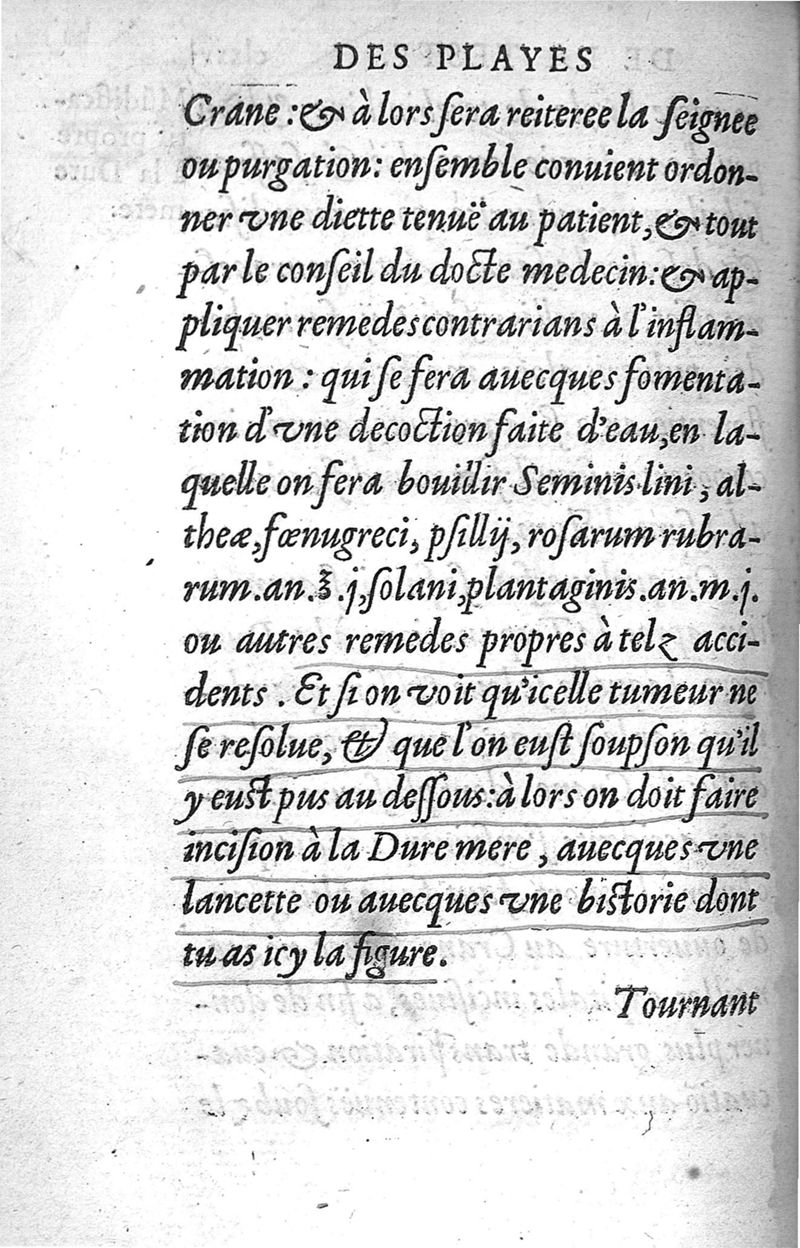 DES PLAYES
Crane : & à lors ſera reiteree la ſeignee
ou purgation : enſemble conuient ordon-
ner vne diette tenuë au patient, & tout
par le conſeil du docte medecin : & ap-
pliquer remedes contrarians à l'inflam-
mation : qui ſe fera auecques fomenta-
tion d'vne decoction faite d'eau, en la-
quelle on fera bouillir Seminis lini, al-
theæ, fœnugreci, pſillij, roſarum rubra-
rum. an. ℥ .j, ſolani, plantaginis. an. m. j.
ou autres remedes propres à telz acci-
dents . Et ſi on voit qu'icelle tumeur ne
ſe reſolue, & que l'on euſt ſoupſon qu'il
y euſt pus au deſſous : à lors on doit faire
inciſion à la Dure mere , auecques vne
lancette ou auecques vne biſtorie dont
tu as icy la figure.
Tournant